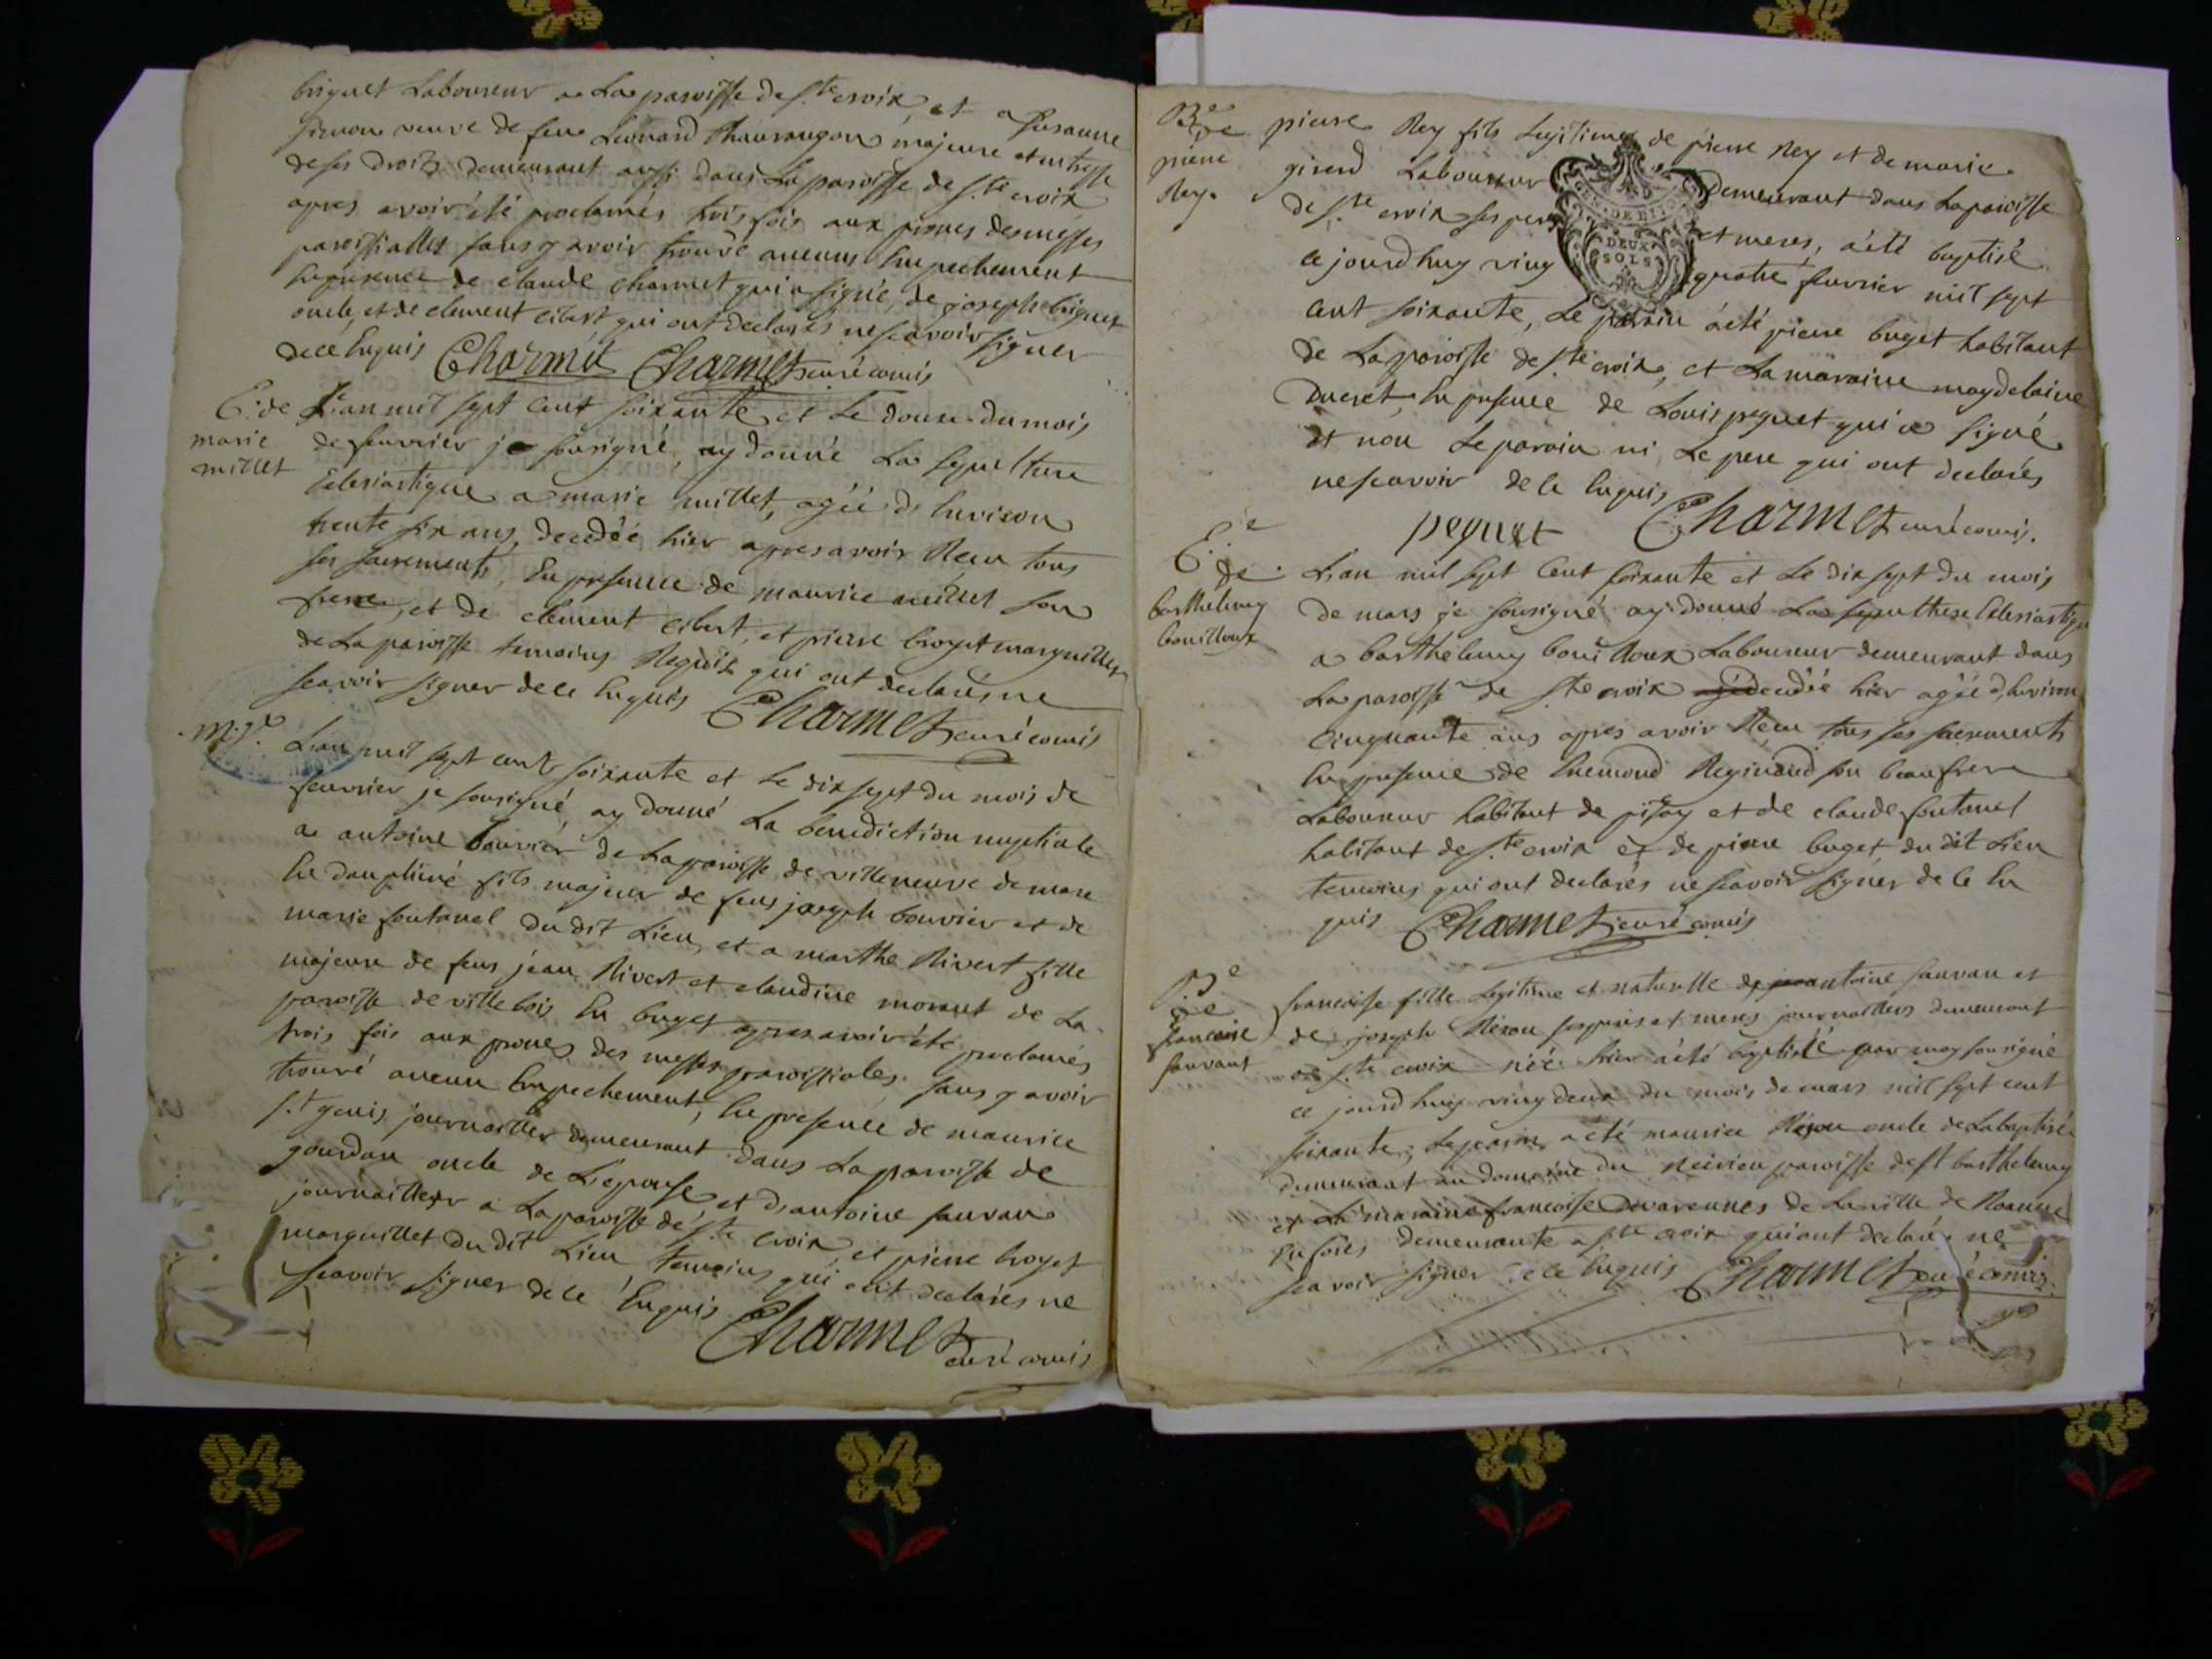 briguet Laboureur a La paroisse de S.te croix et a susanne
simon veuve de feu Léonard majeure et mtresse
de ses droits demeurant aussi dans La paroisse de S.te croix
apres avoir été proclamés trois fois aux prones des messes
paroissialles sans y avoir trouvé aucuns Empechement
En presence de claude charmet qui a signé, de joseph briguet
oncle, et de clement cibert qui ont declarés ne scavoir signer
de ce Enquis Charmet Charmet curé comis
E. de
marie
millet
L'an mil sept cent soixante et Le douze du mois
de feuvrier je sousigné, ay donné La sepulture
Eclesiastique a marie millet, agéé d'Environ
trente six ans, decedéé hier apres avoir Receu tous
ses sacrements, En presence de maurice millet son
frere, et de clement cibert, et pierre broyet marguillier
de La paroisse temoins Requis qui ont declarés ne
scavoir signer de ce Enquis Charmet curé comis
M.ge
L'an mil sept cent soixante et Le dix sept du mois de
feuvrier je sousigné, ay donné La benediction nuptiale
a antoine bouvier de La paroisse de villeneuve de marc
En dauphiné fils majeur de feus joseph bouvier et de
marie fontanel du dit Lieu, et a marthe Rivert fille
majeure de feus jean Rivert et claudine morant de La
paroisse de villebois En buget apres avoir été proclamés
trois fois aux prones des messes paroissiales sans y avoir
trouvé aucun Empechement, En presence de maurice
gourdan oncle de L'epouse, et d'antoine sauvan
S.t genis journallier demeurant dans La paroisse de
journaillier a La paroisse de S.te croix et pierre broyet
marguillet du dit Lieu temoins qui ont declarés ne
scavoir signer de ce Enquis
Charmet
curé comis
B.e
de
pierre
Rey
pierre Rey fils Legitime de pierre Rey et de marie
girerd Laboureur demeurant dans La paroisse
de S.te croix ses peres et meres, a été baptisé
ce jourd'huy ving quatre feuvrier mil sept
GEN. DE DIJON
DEUX
SOLS
cent soixante, Le parain a été pierre buget habitant
de La paroisse de S.te croix, et La maraine magdelaine
Ducret, En presence de Louis pequet qui a signé
et non Le parain ni Le pere qui ont declarés
ne scavoir de ce Enquis
pequet Charmet curé comis.
E.e
de
barthelemy
bouilloux
L'an mil sept cent soixante et Le dix sept du mois
de mars je sousigné ay donné La sepulthure Eclesiastique
a barthelemy bouilloux Laboureur demeurant dans
La paroisse de S.te croix decedéé hier agéé d'Environ
Cinquante ans apres avoir Receu tous ses sacrements
En presence de Enemond Reginaud son beaufrere
Laboureur habitant de pisay et de claude fontanel
habitant de S.te croix et de pierre buget du dit Lieu
temoins qui ont declarés ne scavoir signér de ce En
quis Charmet curé comis
B.e
de
francoise
sauvant
francoise fille Legitime et naturelle de antoine sauvan et
de joseph Réxou ses peres et meres journalliers demeurant
a S.te croix néé hier a été baptiséé par moy sousigné
ce jourd'huy ving deux du mois de mars mil sept cent
soixante; Le parain a été maurice Réxou oncle de La baptiséé
demeurant au domaine du paroisse de St barthelemy
et La maraine francoise Devarennes de La ville de Roanne
En forés demeurante a S.te croix qui ont declarés ne
scavoir signer de ce Enquis Charmet curé comis